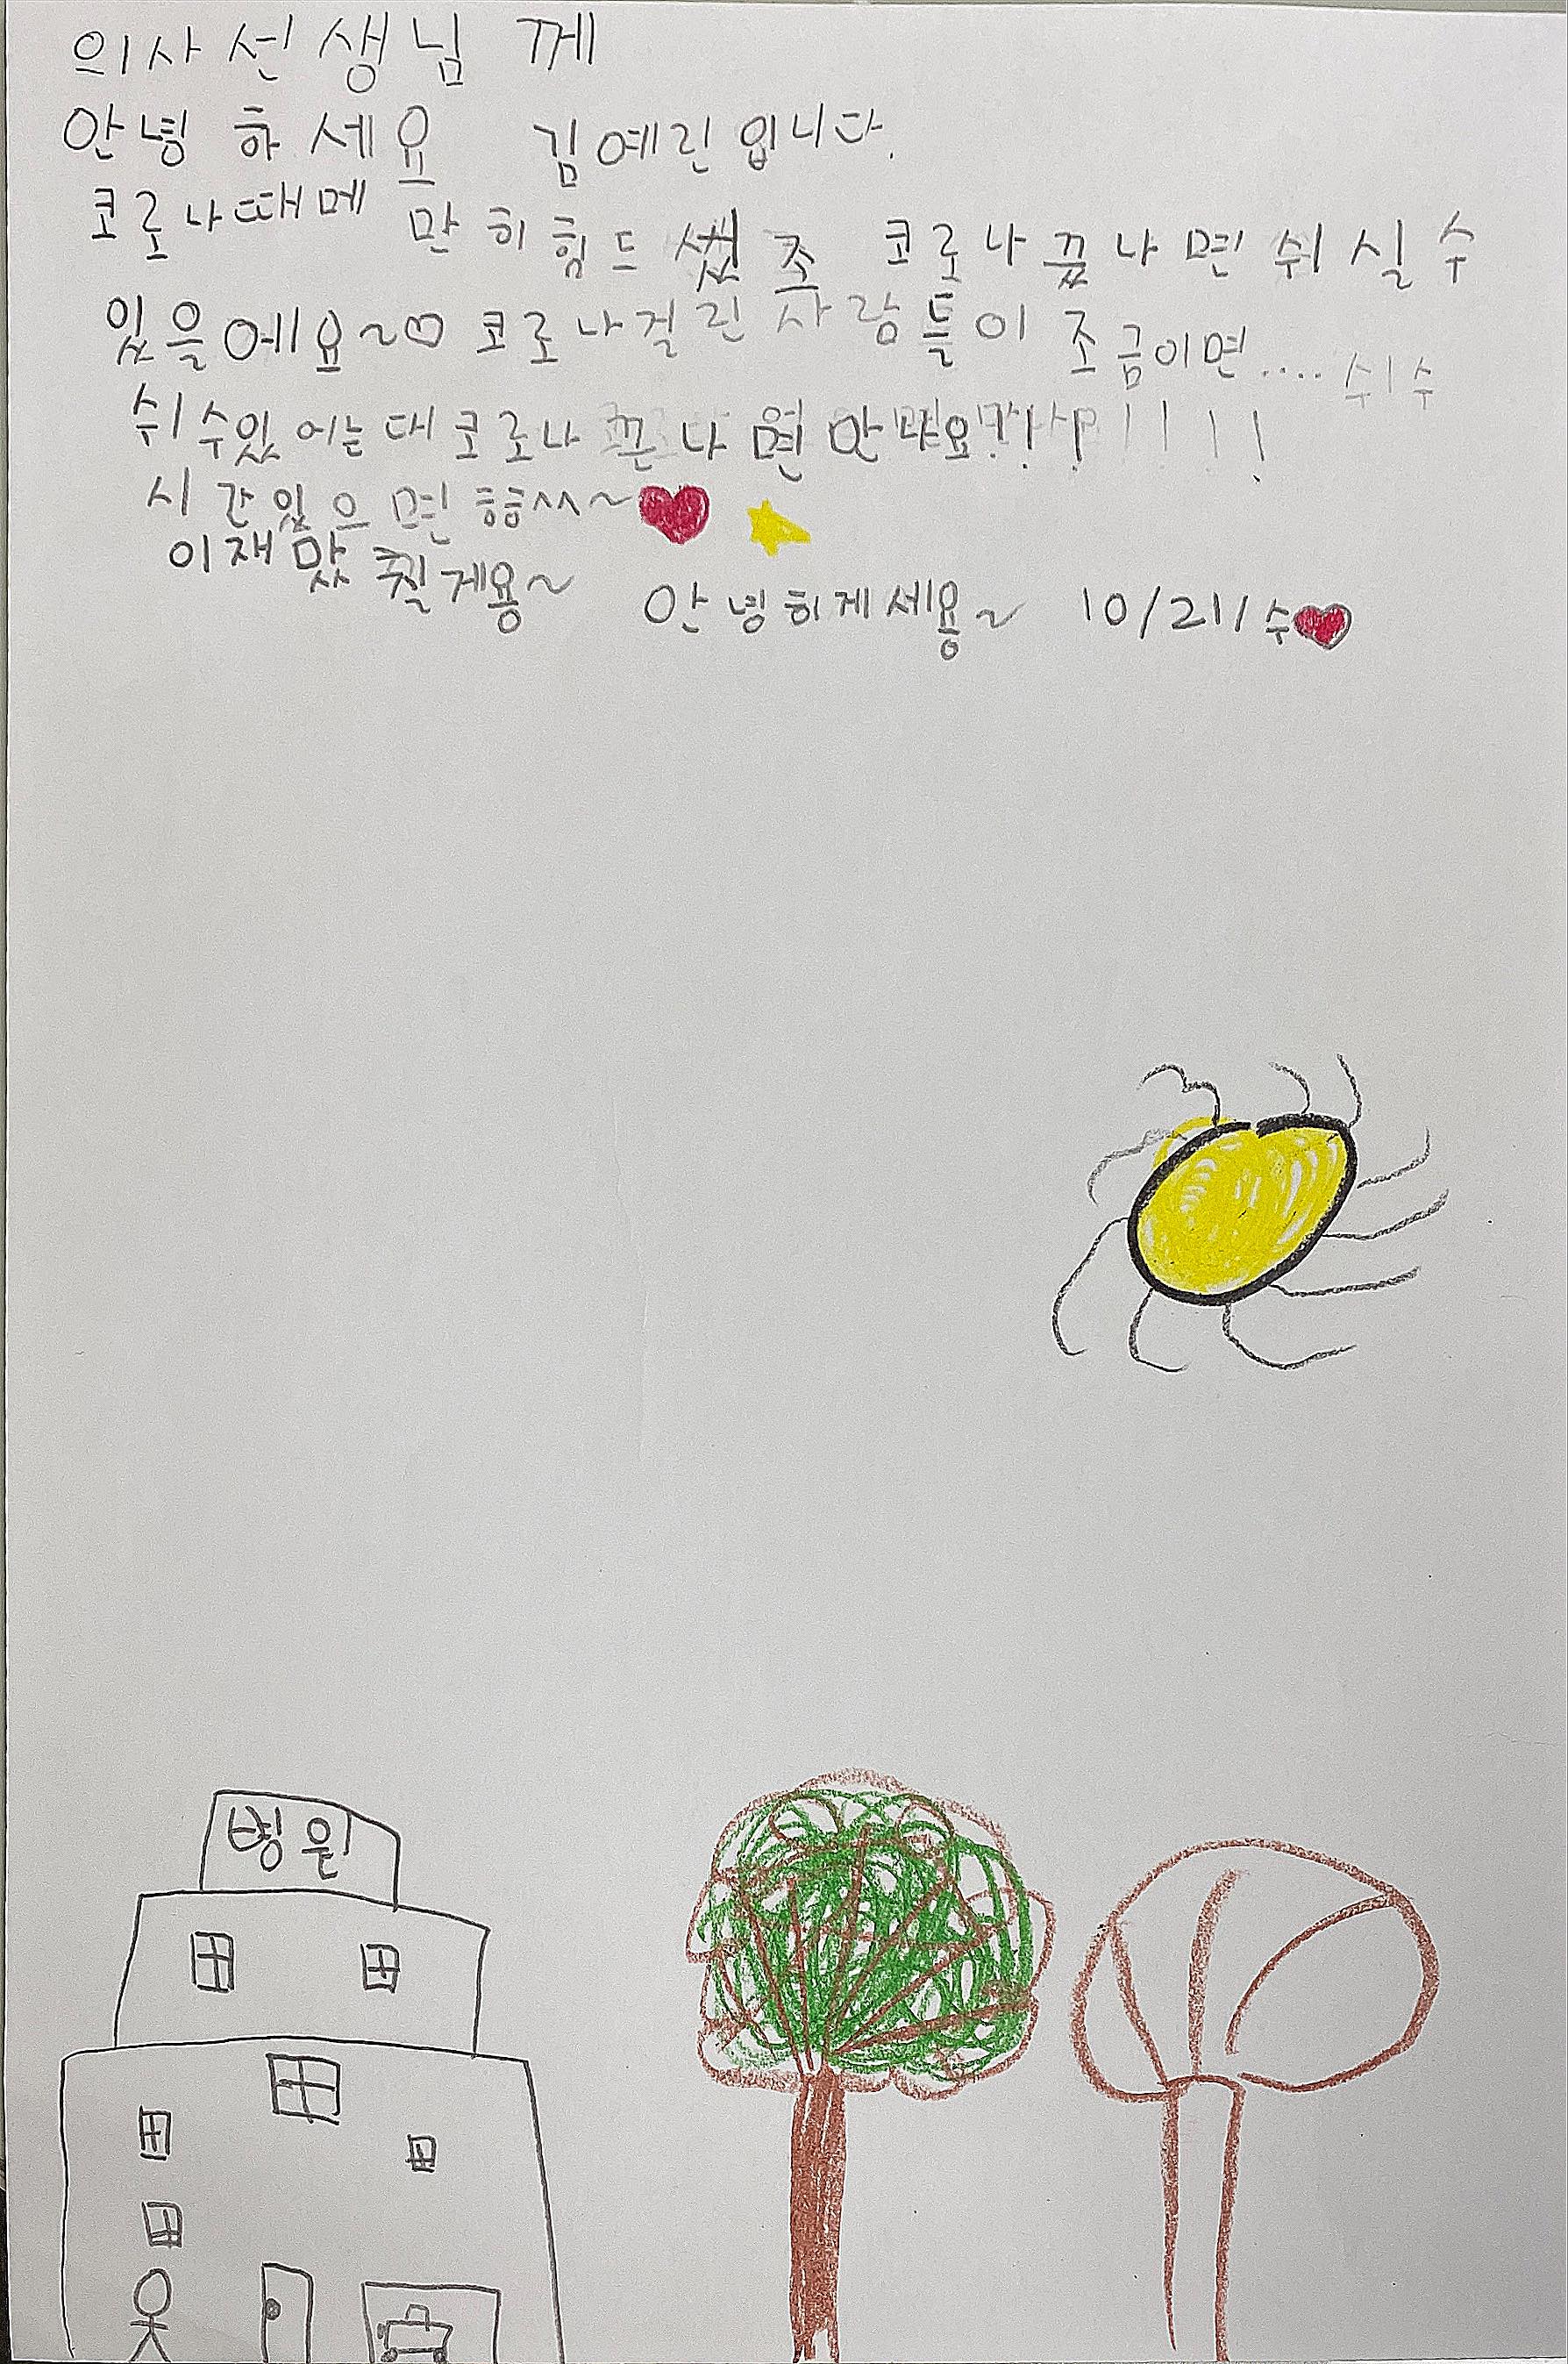 의사 선생님 께
안녕 하세요 김예린입니다.
코로나때메 만히힘드 조 코로나끘나면쉬실수
있을에요~♡ 코로나걸린 사람들이 조금이면.... 쉬수
쉬수있 는대 코로나 끈나 면 만나요!!!!!!!
시간있으면 흠흠^^~
이재맜칠게용~ 안녕히게세용~ 10/21/수
병원